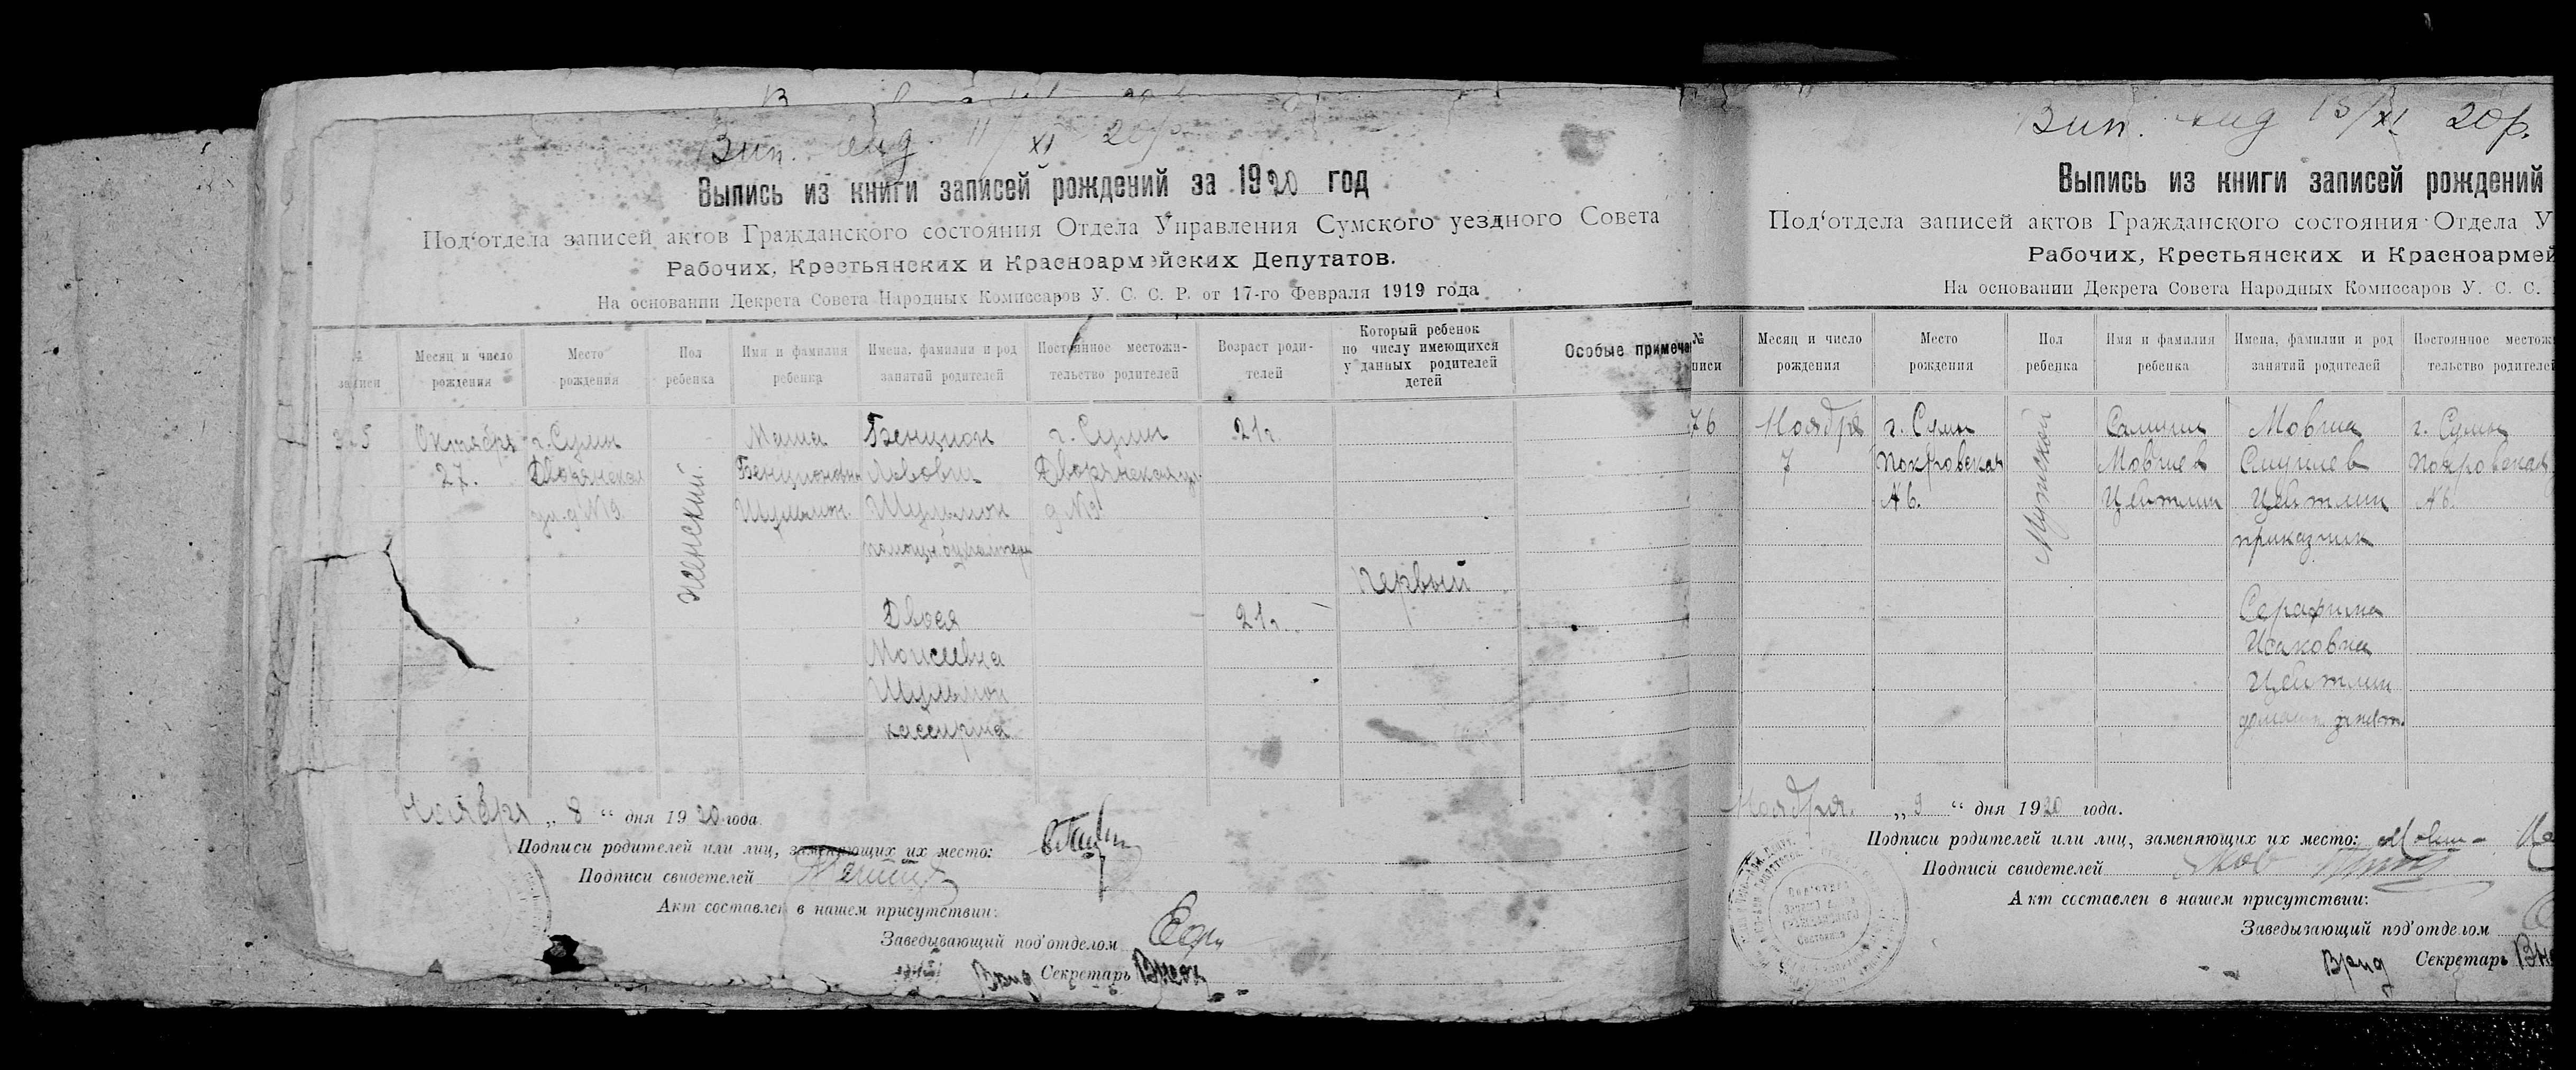 Вип. вид 11/XI 20р.
Выпись из книги записей рождений за 1920 год
Под‘отдела записей актов Гражданского состояния Отдела Управления Сумского уездного Совета
Рабочих, Крестьянских и Красноармейских Депутатов.
На основании Декрета Совета Народных Комиссаров У. С. С. Р. от 17-го Февраля 1919 года
записи
Месяц и число
рождения
Место
рождения
Пол
ребенка
Имя и фамилия
ребенка
Имена, фамилии и род
занятий родителей
Постоянное местожи-
тельство родителей
Возраст роди-
телей
Который ребенок
по числу имеющихся
у данных родителей
детей
Особые примеча
Октября
27.
г. Сумы
Дворянская
ул. д №9.
женский.
Маша
Шульман.
Бенцион
Львович
Шульман
помощн. бухгалтера
Двося
Моисеевна
Шульман
кассирша
г. Сумы
Дворянская ул.
д №9
21 г.
21 г.
Первый
Ноября „ 8 “ дня 1920 года
Подписи родителей или лиц, заменяющих их место:
Подписи свидетелей
Акт составлен в нашем присутствии:
Заведывающий под‘отделом
Врид Секретарь
Вип. вид 13/XI 20р.
Выпись из книги записей рождений
Под‘отдела записей актов Гражданского состояния Отдела У
Рабочих, Крестьянских и Красноармей
На основании Декрета Совета Народных Комиссаров У. С. С.
№
писи
Месяц и число
рождения
Место
рождения
Пол
ребенка
Имя и фамилия
ребенка
Имена, фамилии и род
занятий родителей
Постоянное местож
тельство родителе
76
Ноября
7
г. Сумы
Покровская
№ 6.
Мужской
Мовшев
Цейтлин
Мовша
Шмулев
Цейтлин
приказчик
Серафима
Исаковна
Цейтлин
г. Сумы
Покровская
№ 6.
Ноября. „ 9 “ дня 1920 года.
Подписи родителей или лиц, заменяющих их место:
Подписи свидетелей
Акт составлен в нашем присутствии:
Заведывающий под‘отделом
Врид Секретарь